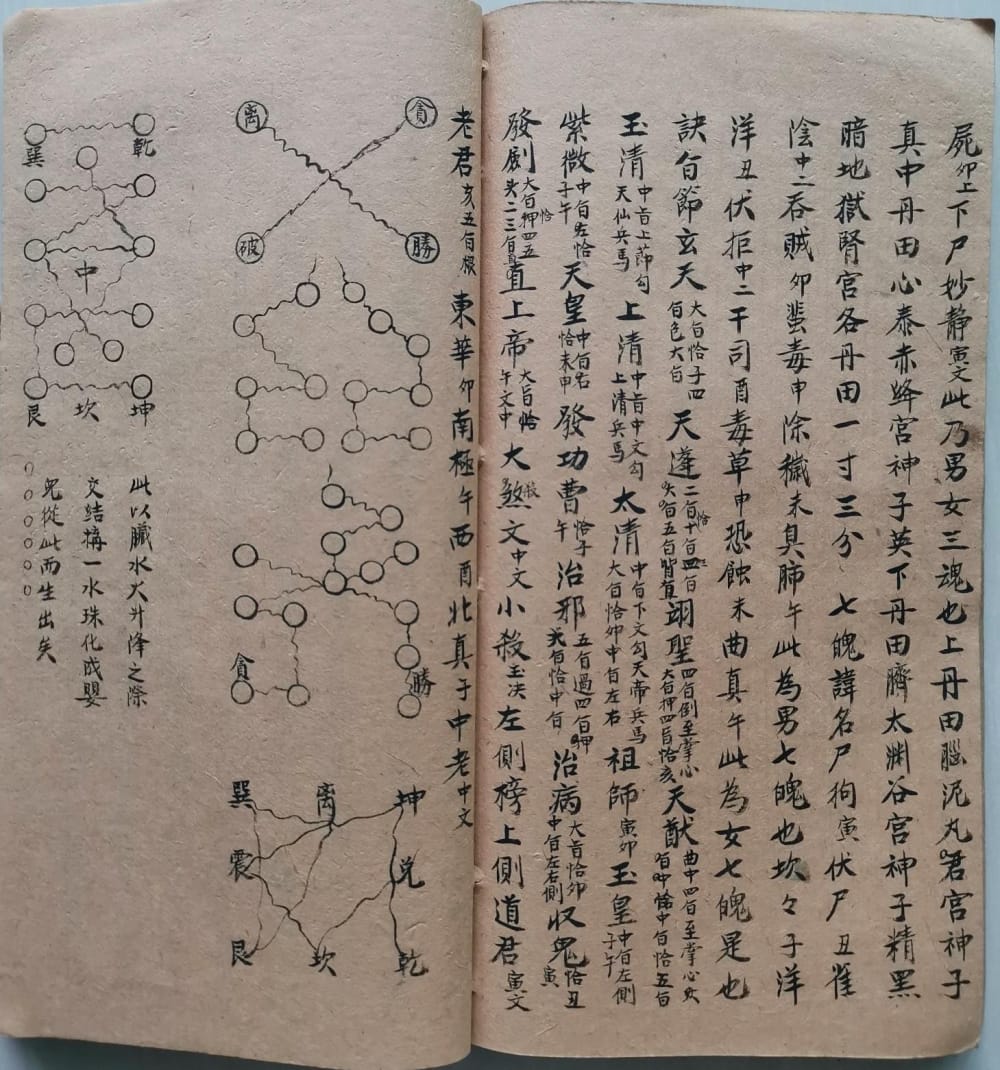 屍卯上下尸妙静寅文此乃男女三魂也上丹田腦泥丸君宮神子
真中丹田心泰赤绛宮神子英下丹田臍太渊谷宮神子精黑
暗地獄腎宮各丹田一寸三分、七魄諱名尸狗寅伏尸丑雀
陰中二吞賊卯蜚毒申除穢未臭肺午此為男七魄也坎々子洋
洋丑伏拒中二干司酉毒草申恐蝕未曲真午此為女七魄是也
訣旨節玄天大旨恰子四旨色大旨天蓬二旨恰十旨四旨頭旨五旨背直翊聖四旨倒至掌心大旨押四旨恰亥天猷曲中四旨至掌心中旨恰五旨
玉清中旨上節勾天仙兵馬上清中旨中文勾上清兵馬太清中旨下文勾天帝兵馬大旨恰卯中旨左右祖師寅卯玉皇中旨左側子午
紫微中旨左恰子午天皇中旨右恰未申發功曹恰子午治邪五旨過四旨押旨恰中旨治病大旨恰卯中旨左右側収鬼恰丑寅
發劇大旨押四五恰头二三旨直上帝大旨恰午文中大煞文中文小殺玉决左側榜上側道君寅文
老君亥五旨根東華卯南極午西酉北真子中老中文
离
貪
破
勝
貪
勝
巽
离
坤
震
兌
艮
坎
乾
巽
乾
中
艮
坎
坤
此以臓水火升降之除
交结搆一水珠化成嬰
兒從此而生出矣